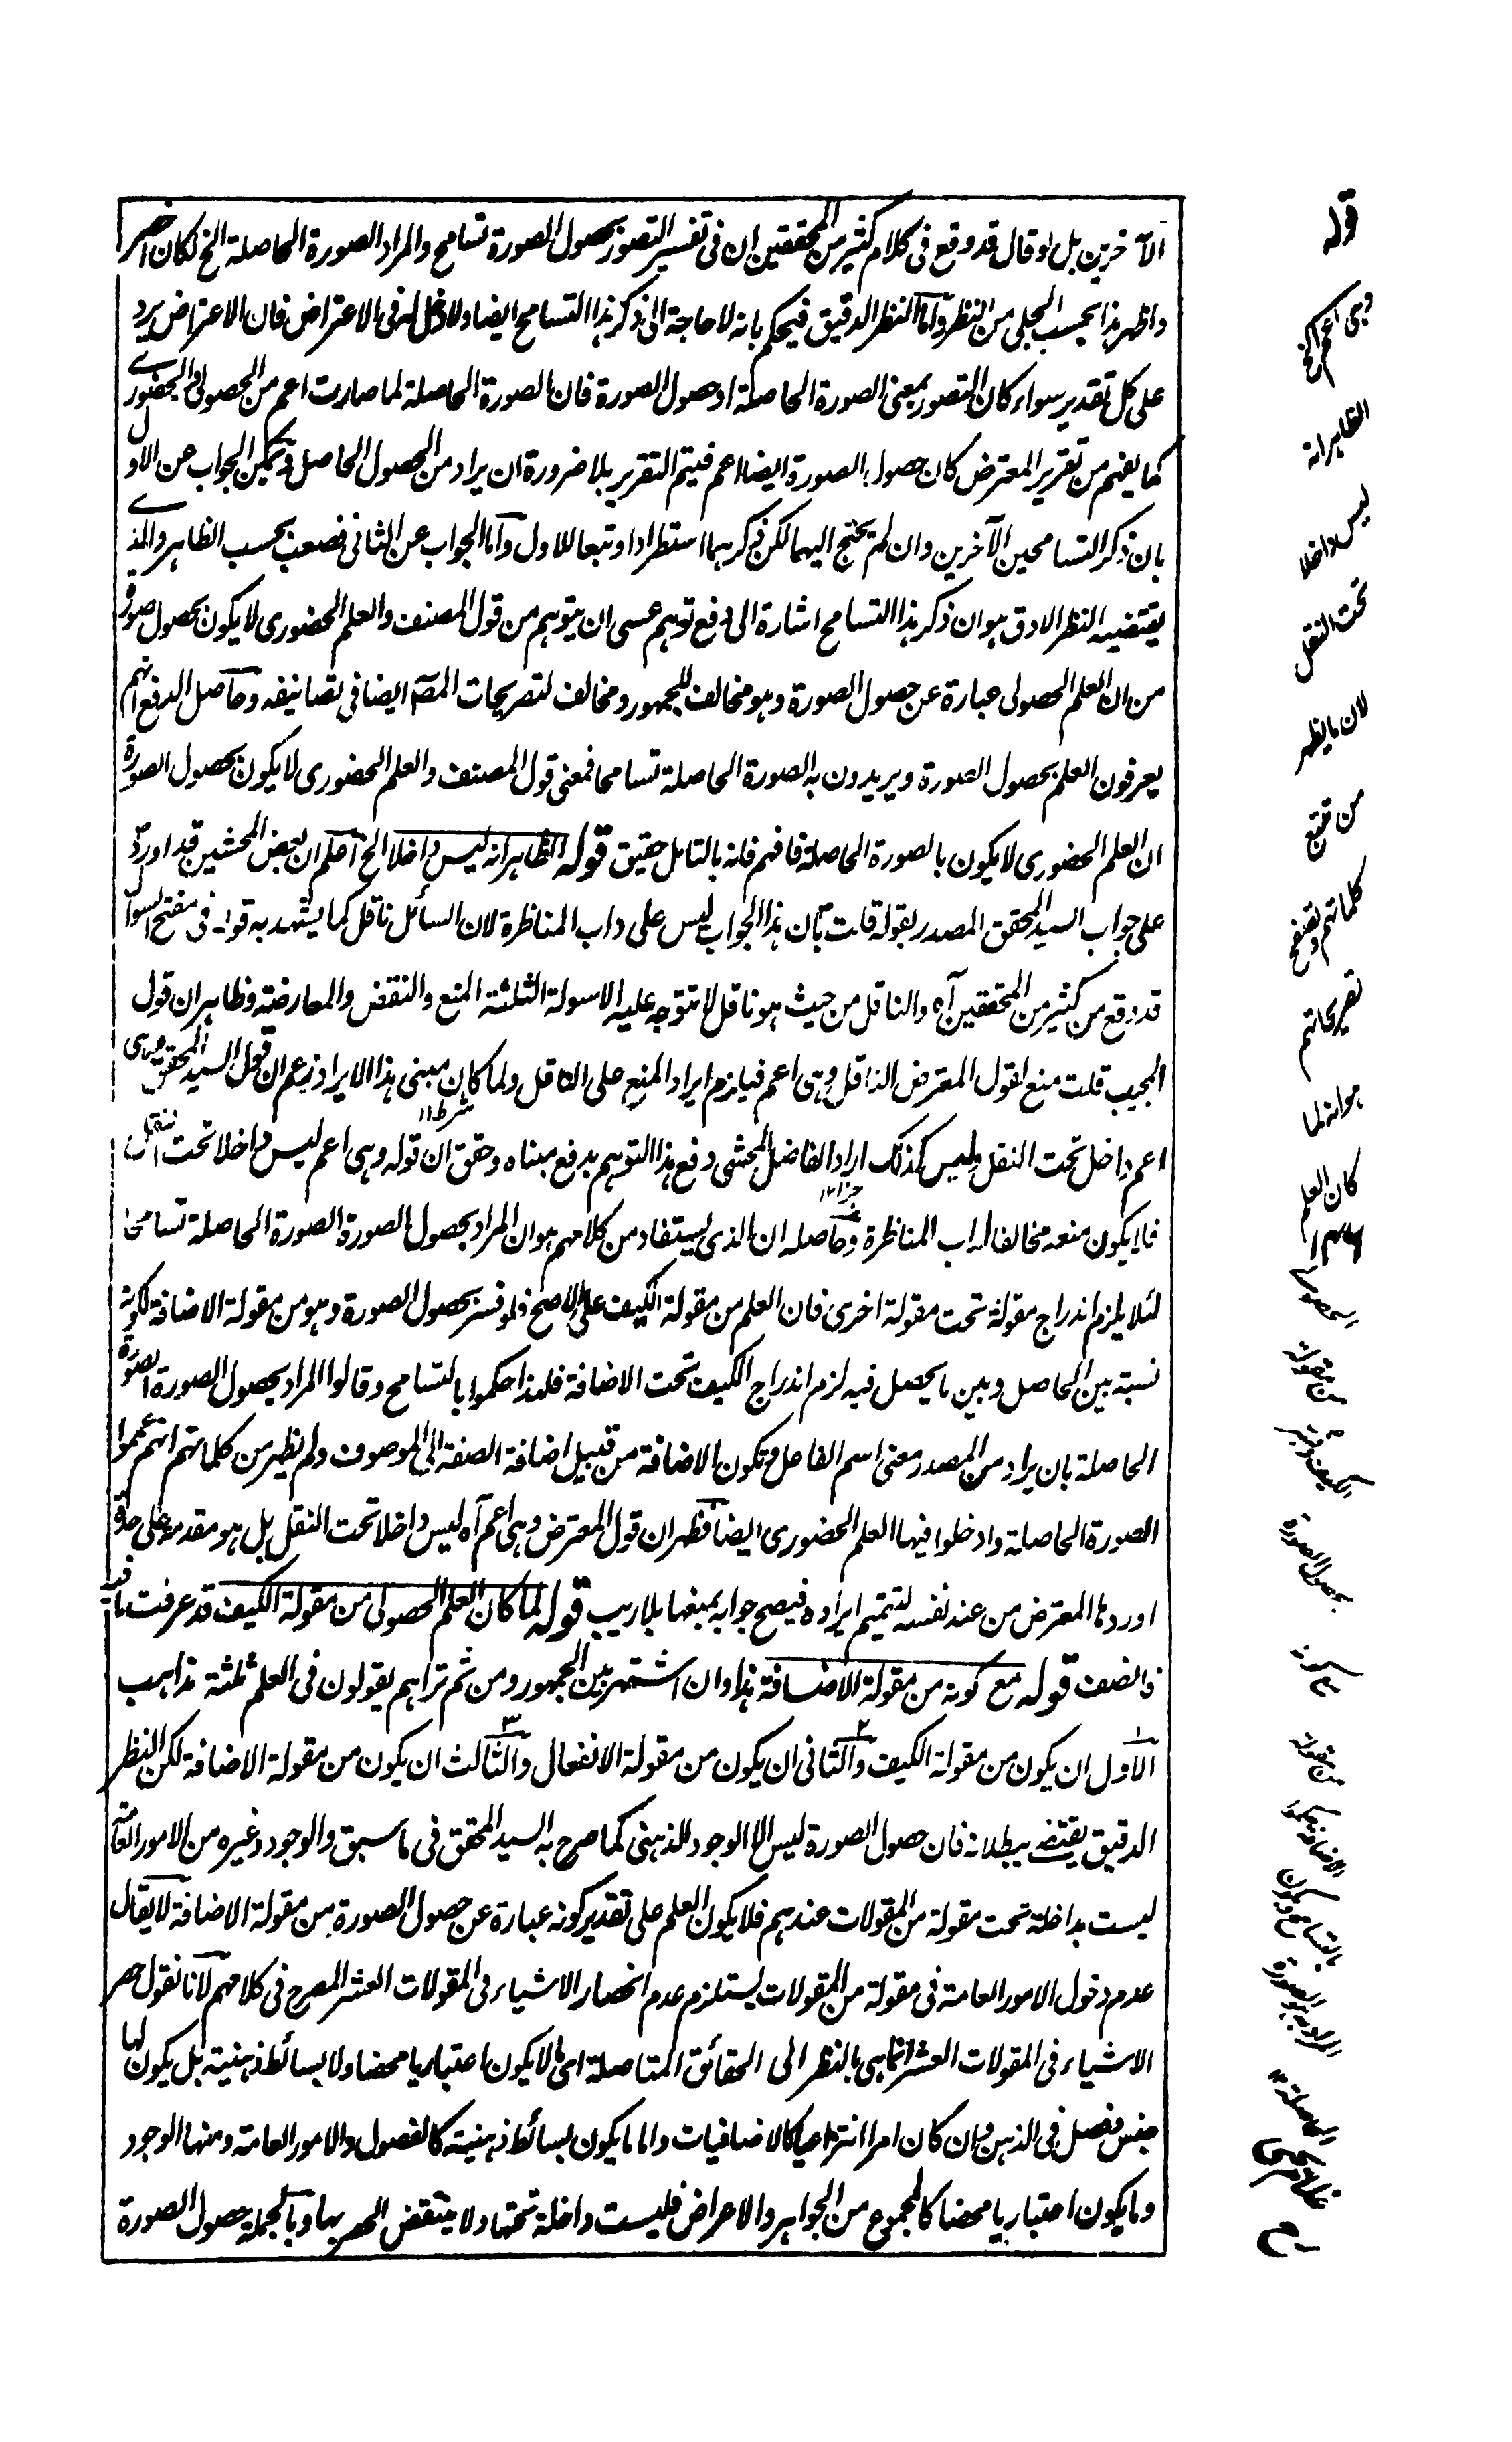 الآخرين بل لو قال قد وقع فى كلام كثير من المحققين ان فى تفسير التصور بحصول الصورة تسامح والمراد الصورة الحاصلة الخ لكان اخصر
واظهر هذا بحسب الجلى من النظر واما النظر الدقيق فيحكم بانه لا حاجة الى ذكر هذا التسامح ايضا ولا دخل له فى الاعتراض فان الاعتراض يرد
على كل تقدير سواء كان التصور بمعنى الصورة الحاصلة او حصول الصورة فان الصورة الحاصلة لما صارت اعم من الحصولى والحضورى
كما يفهم من تقرير المعترض كان حصول الصورة ايضا اعم فيتم التقرير بلا ضرورة ان يراد من الحصول الحاصل ويمكن الجواب عن الاول
بان ذكر التسامحين الآخرين وان لم يحتج اليهما لكن ذكرهما استطرادا وتبعا للاول واما الجواب عن الثانى فصعب بحسب الظاهر والذى
يقتضيه النظر الادق هو ان ذكر هذا التسامح اشارة الى دفع توهم عسى ان يتوهم من قول المصنف والعلم الحضورى لا يكون بحصول صورة
من ان العلم الحصولى عبارة عن حصول الصورة وهو مخالف للجمهور ومخالف لتصريحات المصـ ايضا فى تصانيفه وحاصل الدفع انهم
يعرفون العلم بحصول الصورة ويريدون به الصورة الحاصلة تسامحا فمعنى قول المصنف والعلم الحضورى لا يكون بحصول الصورة
ان العلم الحضورى لا يكون بالصورة الحاصلة فافهم فانه بالتامل حقيق قوله الظاهر انه ليس داخلا الخ اعلم ان بعض المحشين قد اورد
على جواب السيد المحقق المصدر بقوله قلت بان هذا الجواب ليس على داب المناظرة لان السائل ناقل كما يشهد به قوله فى مفتح السوال
قد وقع من كثير من المحققين آه والناقل من حيث هو ناقل لا تتوجه عليه الاسولة الثلثة المنع والنقض والمعارضة وظاهر ان قول
المجيب قلت منع لقول المعترض الناقل وهى اعم فيلزم ايراد المنع على الناقل ولما كان مبنى هذا الايراد زعم ان قول السيد المحقق وهى
اعم داخل تحت النقل وليس كذلك اراد الفاضل المحشى دفع هذا التوهم بدفع مبناه وحقق ان قوله وهى اعم ليس داخلا تحت النقل
فلا يكون منعه مخالفا لداب المناظرة وحاصله ان الذى يستفاد من كلامهم هو ان المراد بحصول الصورة الصورة الحاصلة تسامحا
لئلا يلزم اندراج مقولة تحت مقولة اخرى فان العلم من مقولة الكيف على الاصح فلو فسر بحصول الصورة وهو من مقولة الاضافة لكونه
نسبة بين الحاصل وبين ما يحصل فيه لزم اندراج الكيف تحت الاضافة فلهذا حكموا بالتسامح وقالوا المراد بحصول الصورة الصورة
الحاصلة بان يراد من المصدر معنى اسم الفاعل وتكون الاضافة من قبيل اضافة الصفة الى الموصوف ولم يظهر من كلماتهم انهم عمموا
الصورة الحاصلة وادخلوا فيها العلم الحضورى ايضا فظهر ان قول المعترض وهى اعم آه ليس داخلا تحت النقل بل هو مقدمة على حدة
اوردها المعترض من عند نفسه لتتميم ايراده فيصح جوابه بمنعها بلا ريب قوله لما كان العلم الحصولى من مقولة الكيف قد عرفت ما فيه
فانصف قوله مع كونه من مقولة الاضافة هذا وان اشتهر بين الجمهور ومن ثم تراهم يقولون فى العلم ثلثة مذاهب
الاول ان يكون من مقولة الكيف والثانى ان يكون من مقولة الانفعال والثالث ان يكون من مقولة الاضافة لكن النظر
الدقيق يقتضى ببطلانه فان حصول الصورة ليس الا الوجود الذهنى كما صرح به السيد المحقق فى ما سبق والوجود وغيره من الامور العامة
ليست بداخلة تحت مقولة من المقولات عندهم فلا يكون العلم على تقدير كونه عبارة عن حصول الصورة من مقولة الاضافة لا يقال
عدم دخول الامور العامة فى مقولة من المقولات يستلزم عدم انحصار الاشياء فى المقولات العشر المصرح فى كلامهم لانا نقول حصر
الاشياء فى المقولات العشر انما هى بالنظر الى الحقائق المتاصلة اى ما لا يكون اعتباريا محضا ولا بسائط ذهنية بل يكون لها
جنس وفصل فى الذهن وان كان امرا انتزاعيا كالاضافيات واما ما يكون بسائط ذهنية كالفصول والامور العامة ومنها الوجود
وما يكون اعتباريا محضا كالمجموع من الجواهر والاعراض فليست داخلة تحتها ولا ينتقض الحصر بها وبالجملة حصول الصورة
قوله
وهى اعم الخ
الظاهر انه
ليس داخلا
تحت النقل
لان ما يظهر
من تتبع
كلماتهم وتصفح
تصريحاتهم
هو انه لما
كان العلم
الحصولى
من مقولة
الكيف
بحصول الصورة
مع كونه
من مقولة
الاضافة حكموا
بالتسامح
المراد به الصورة
الحاصلة